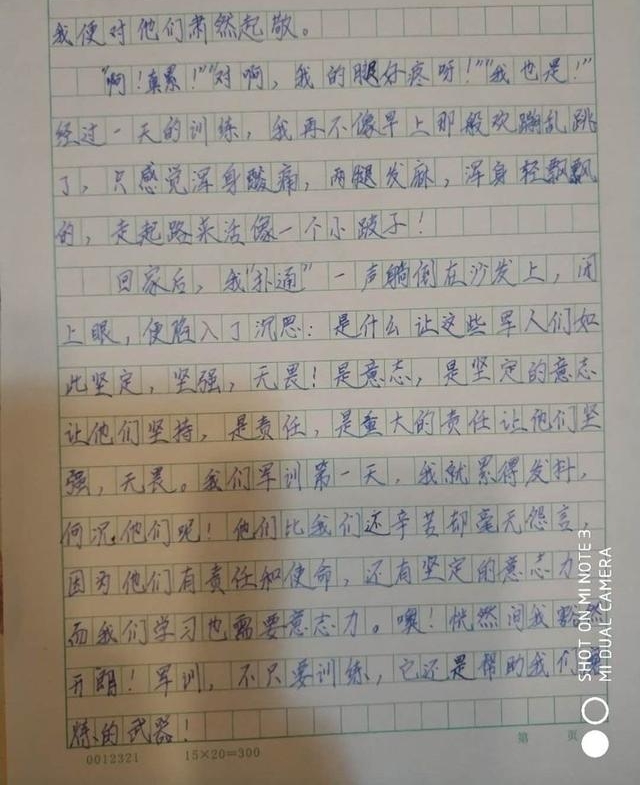 我便对他们肃然起敬。
"啊!真累!""对啊,我的腿好疼呀!""我也是!"
经过一天的训练,我再不像早上那般欢蹦乱跳
了,只感觉浑身酸痛,两腿发麻,浑身轻飘飘
的,走起路来活像一个小跛子!
回家后,我"扑通"一声躺倒在沙发上,闭
上眼,便陷入了沉思:是什么让这些军人们如
此坚定,坚强,无畏!是意志,是坚定的意志
让他们坚持,是责任,是重大的责任让他们坚
强,无畏。我们军训第一天,我就累得发抖,
何况他们呢!他们比我们还辛苦却毫无怨言,
因为他们有责任和使命,还有坚定的意志力
而我们学习也需要意志力。噢!恍然间我豁然
开朗!军训,不只要训练,它还是帮助我们
炼的武器!
0012321 15×20=300 第 页
SHOT ON MI NOTE 3
MI DUAL CAMERA